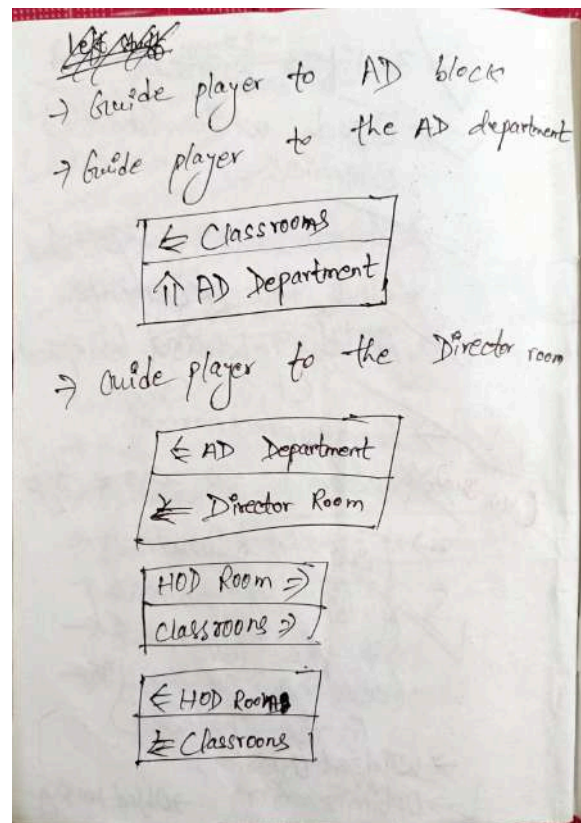 → Guide player to AD block
→ Guide player to the AD department
⇐ Classrooms
⇑ AD Department
→ Guide player to the Director room
⇐ AD Department
⇐ Director Room
HOD Room ⇒
Classrooms ⇒
⇐ HOD Room
⇐ Classrooms